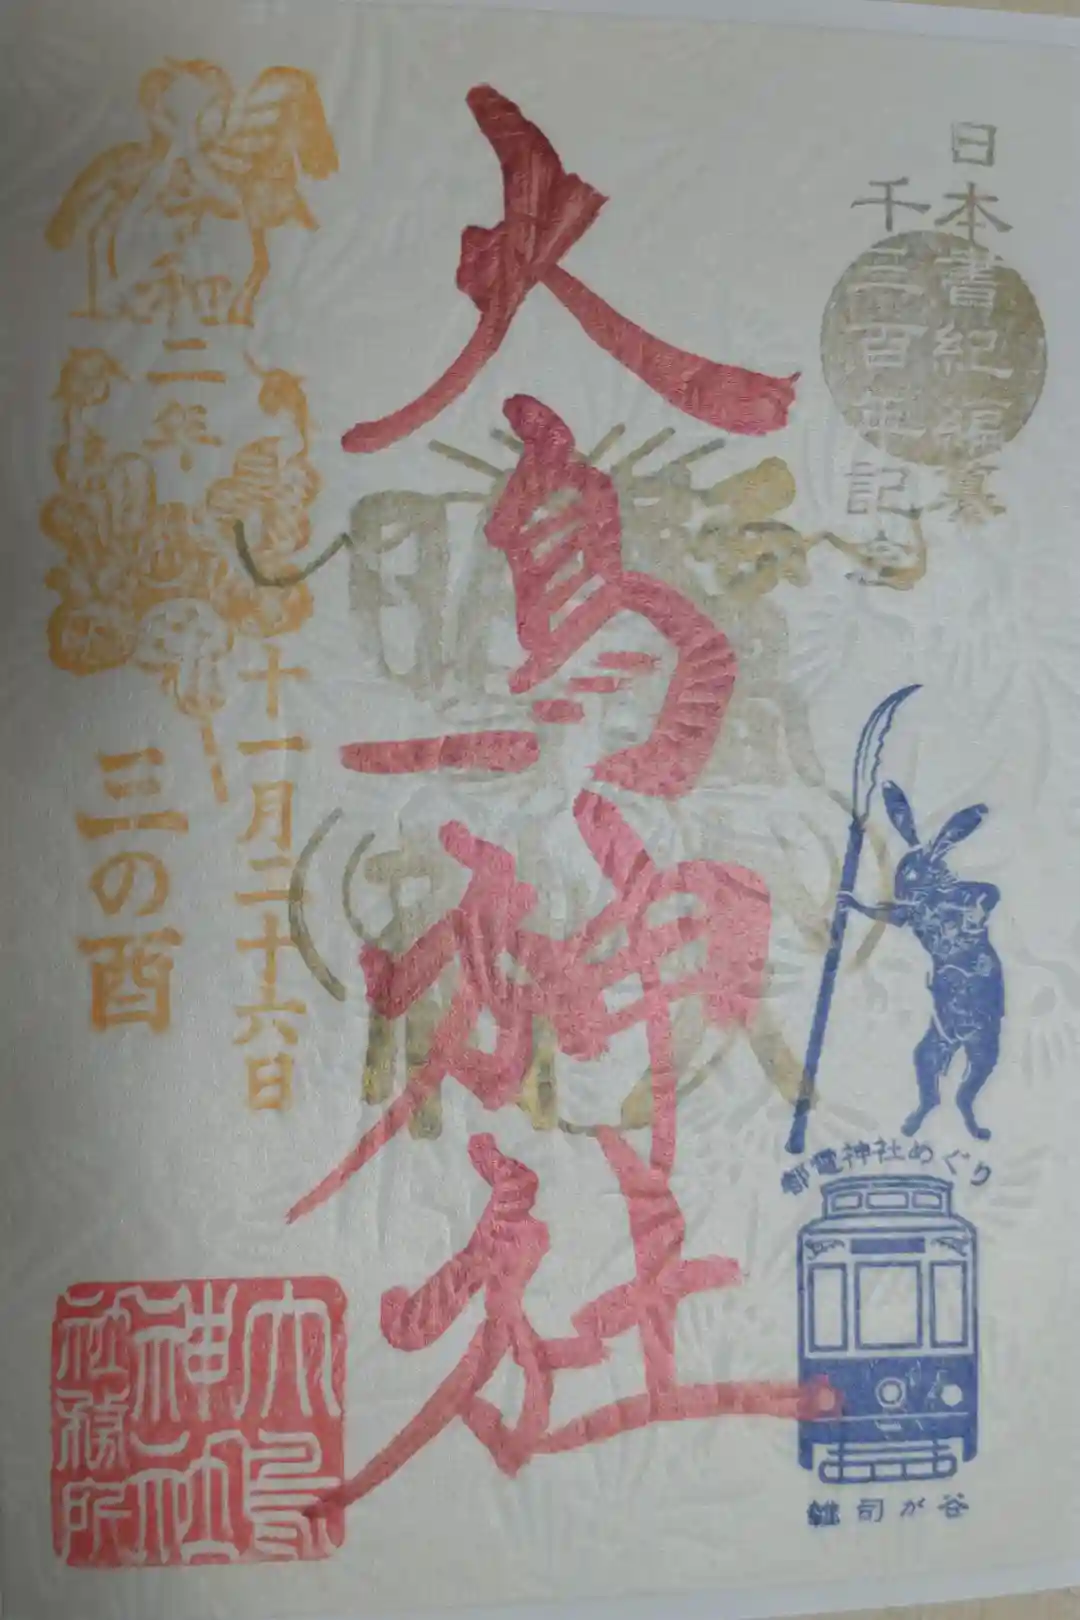 日本書紀編纂
千三百年記念
大鳥神社
都電神社めぐり
雑司が谷
令和二年
十一月二十六日
三の酉
大鳥
神社
社務所